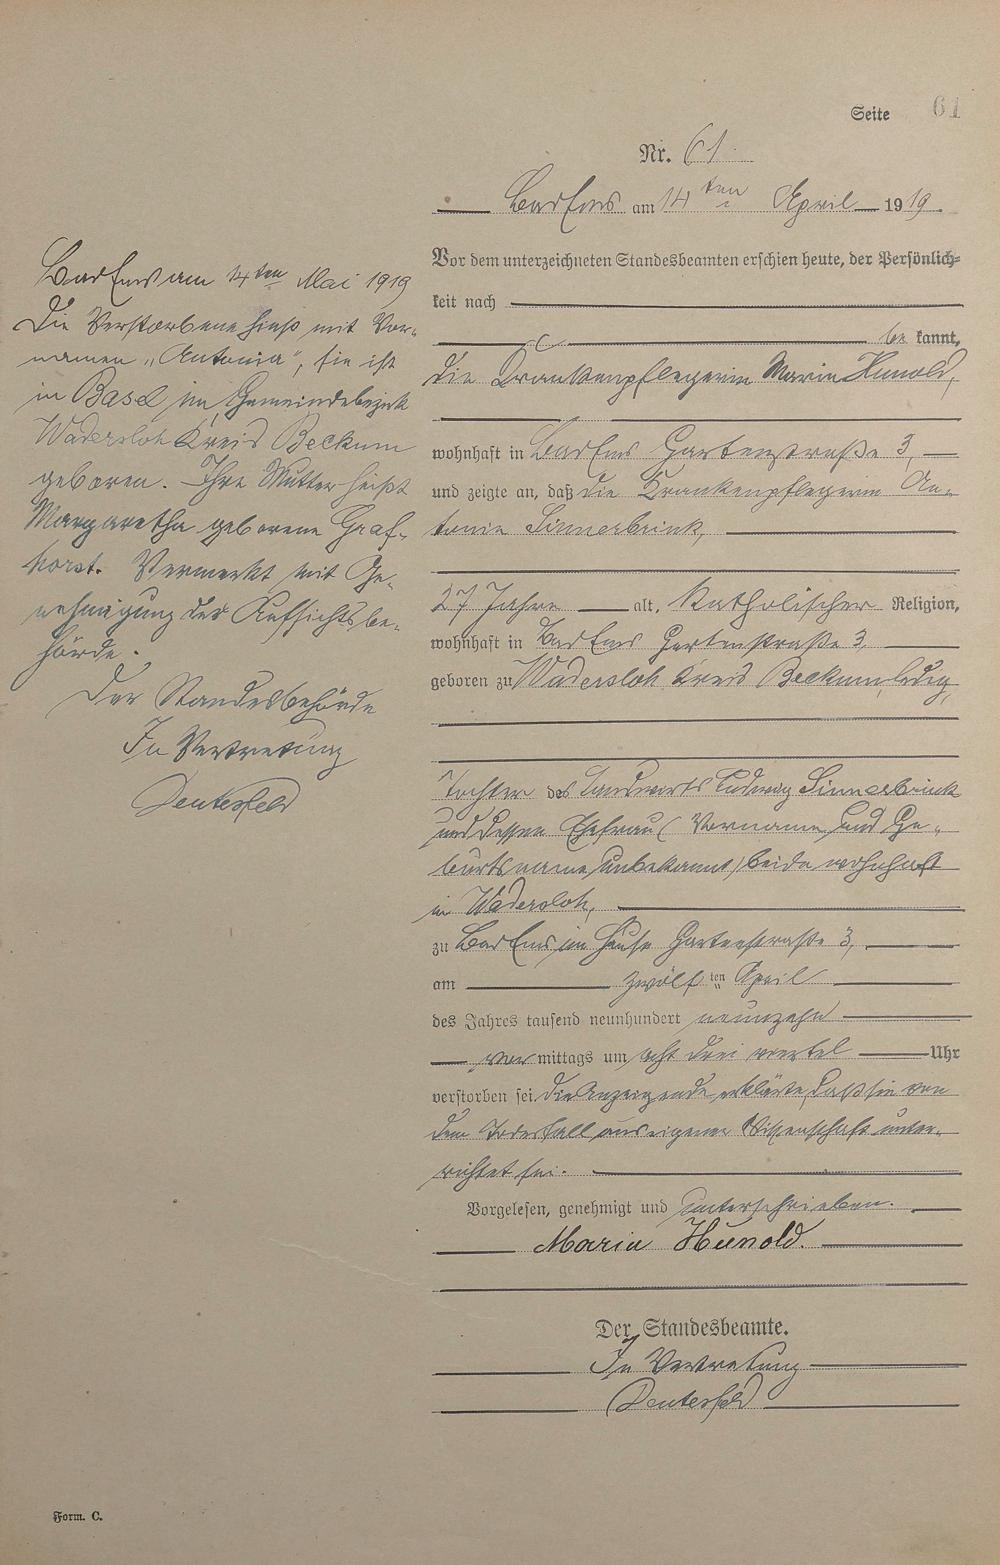 Seite 61
Nr. 61.
Bad Ems am 14 ten April 1919.
Vor dem unterzeichneten Standesbeamten erschien heute, der Persönlich-
keit nach
be kannt,
die Krankenpflegerin Maria Hunold,
wohnhaft in Bad Ems Gartenstraße 3,
und zeigte an, daß die Krankenpflegerin An-
tonie Sinnerbrink,
27 Jahre alt, katholischer Religion,
wohnhaft in Bad Ems Gartenstraße 3,
geboren zu Wadersloh Kreis Beckum, ledig,
Tochter des Landwirts Ludwig Sinnerbrink
und dessen Ehefrau (Vorname und Ge-
burtsname unbekannt) beide wohnhaft
in Wadersloh,
zu Bad Ems im Hause Gartenstraße 3,
am zwölf ten April
des Jahres tausend neunhundert neunzehn
vor mittags um acht drei viertel Uhr
verstorben sei. Die Anzeigende erklärte, daß sie von
dem Todesfall aus eigener Wissenschaft unter-
richtet sei.
Vorgelesen, genehmigt und unterschrieben.
Maria Hunold.
Der Standesbeamte.
In Vertretung
Deutesfeld
Bad Ems am 14ten Mai 1919
Die Verstorbene hieß mit Vor-
namen „Antonia", sie ist
in Basel im Gemeindebezirk
Wadersloh Kreis Beckum
geboren. Ihre Mutter heißt
Margaretha geborene Graf-
horst. Vermerkt mit Ge-
nehmigung der Aufsichtsbe-
hörde.
Der Standesbehörde
In Vertretung
Deutesfeld
Form. C.